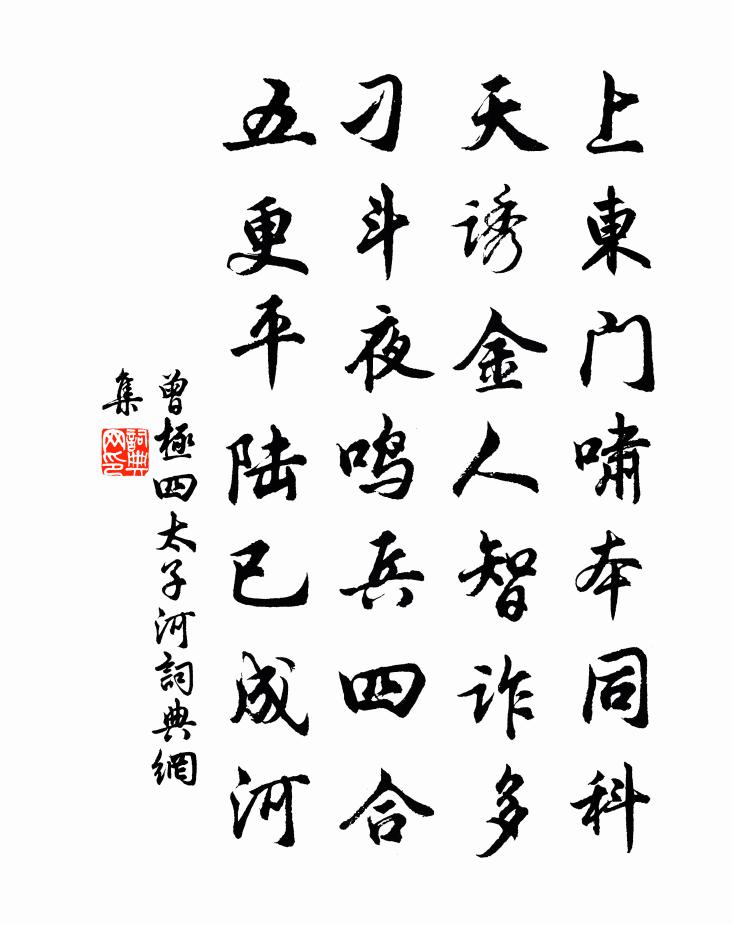 上東门啸本同科
天诱金人智诈多
刁斗夜鸣兵四合
五更平陆已成河
曾極四太子河詞典網
集
詞典
网印